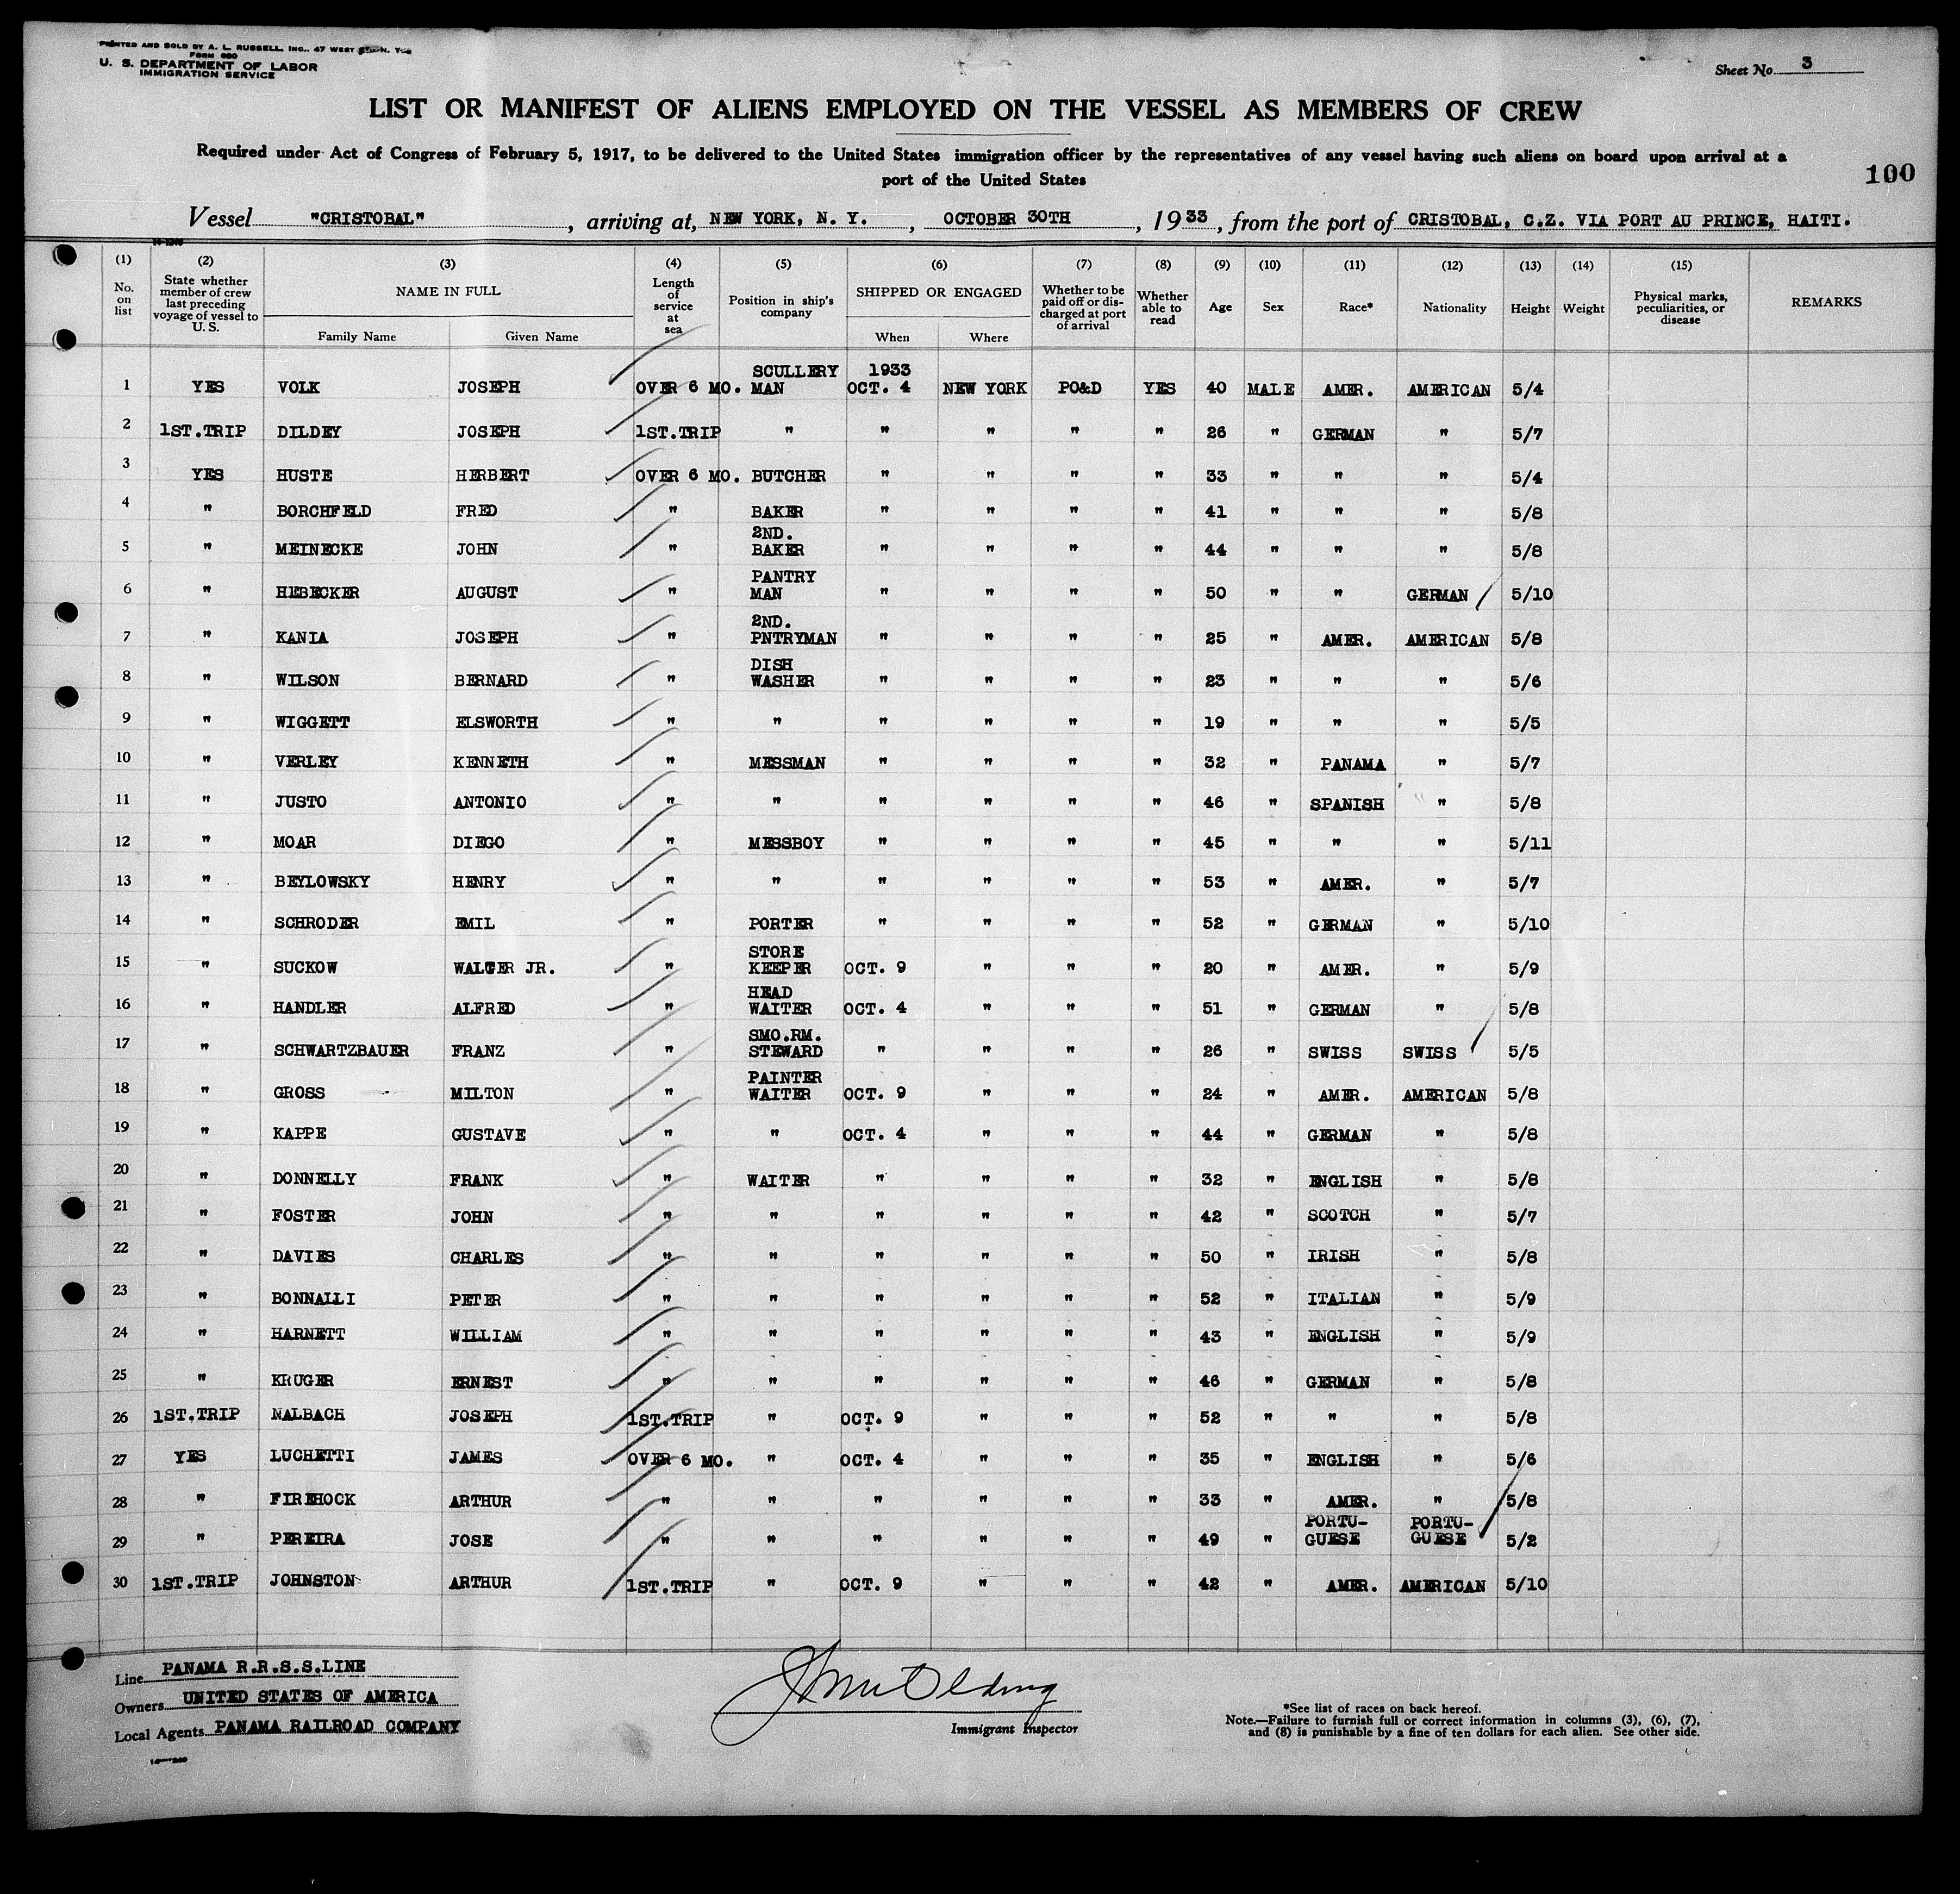 PRINTED AND SOLD BY A. L. RUSSELL, INC., 47 WEST ST., N. Y.
FORM 680
U. S. DEPARTMENT OF LABOR
IMMIGRATION SERVICE
Sheet No. 3
LIST OR MANIFEST OF ALIENS EMPLOYED ON THE VESSEL AS MEMBERS OF CREW
Required under Act of Congress of February 5, 1917, to be delivered to the United States immigration officer by the representatives of any vessel having such aliens on board upon arrival at a
port of the United States
100
Vessel "CRISTOBAL", arriving at, NEW YORK, N. Y., OCTOBER 30TH, 1933, from the port of CRISTOBAL, C.Z. VIA PORT AU PRINCE, HAITI.
(1) No. on list (2) State whether member of crew last preceding voyage of vessel to U. S. (3) NAME IN FULL Family Name Given Name (4) Length of service at sea (5) Position in ship's company (6) SHIPPED OR ENGAGED When Where (7) Whether to be paid off or discharged at port of arrival (8) Whether able to read (9) Age (10) Sex (11) Race* (12) Nationality (13) Height (14) Weight (15) Physical marks, peculiarities, or disease REMARKS
1 YES VOLK JOSEPH OVER 6 MO. SCULLERY MAN 1933 OCT. 4 NEW YORK PO&D YES 40 MALE AMER. AMERICAN 5/4
2 1ST.TRIP DILDEY JOSEPH 1ST.TRIP " " " " " 26 " GERMAN " 5/7
3 YES HUSTE HERBERT OVER 6 MO. BUTCHER " " " " 33 " " " 5/4
4 " BORCHFELD FRED " BAKER " " " " 41 " " " 5/8
5 " MEINECKE JOHN " 2ND. BAKER " " " " 44 " " " 5/8
6 " HEBECKER AUGUST " PANTRY MAN " " " " 50 " " GERMAN 5/10
7 " KANIA JOSEPH " 2ND. PNTRYMAN " " " " 25 " AMER. AMERICAN 5/8
8 " WILSON BERNARD " DISH WASHER " " " " 23 " " " 5/6
9 " WIGGETT ELSWORTH " " " " " " 19 " " " 5/5
10 " VERLEY KENNETH " MESSMAN " " " " 32 " PANAMA " 5/7
11 " JUSTO ANTONIO " " " " " " 46 " SPANISH " 5/8
12 " MOAR DIEGO " MESSBOY " " " " 45 " " " 5/11
13 " BEYLOWSKY HENRY " " " " " " 53 " AMER. " 5/7
14 " SCHRODER EMIL " PORTER " " " " 52 " GERMAN " 5/10
15 " SUCKOW WALTER JR. " STORE KEEPER OCT. 9 " " " 20 " AMER. " 5/9
16 " HANDLER ALFRED " HEAD WAITER OCT. 4 " " " 51 " GERMAN " 5/8
17 " SCHWARTZBAUER FRANZ " SMO.RM. STEWARD " " " " 26 " SWISS SWISS 5/5
18 " GROSS MILTON " PAINTER WAITER OCT. 9 " " " 24 " AMER. AMERICAN 5/8
19 " KAPPE GUSTAVE " " OCT. 4 " " " 44 " GERMAN " 5/8
20 " DONNELLY FRANK " WAITER " " " " 32 " ENGLISH " 5/8
21 " FOSTER JOHN " " " " " " 42 " SCOTCH " 5/7
22 " DAVIES CHARLES " " " " " " 50 " IRISH " 5/8
23 " BONNALLI PETER " " " " " " 52 " ITALIAN " 5/9
24 " HARNETT WILLIAM " " " " " " 43 " ENGLISH " 5/9
25 " KRUGER ERNEST " " " " " " 46 " GERMAN " 5/8
26 1ST.TRIP NALBACH JOSEPH 1ST.TRIP " OCT. 9 " " " 52 " " " 5/8
27 YES LUCHETTI JAMES OVER 6 MO. " OCT. 4 " " " 35 " ENGLISH " 5/6
28 " FIREHOCK ARTHUR " " " " " " 33 " AMER. " 5/8
29 " PEREIRA JOSE " " " " " " 49 " PORTU- GUESE PORTU- GUESE 5/2
30 1ST.TRIP JOHNSTON ARTHUR 1ST.TRIP " OCT. 9 " " " 42 " AMER. AMERICAN 5/10
Line PANAMA R.R.S.S.LINE
Owners UNITED STATES OF AMERICA
Local Agents PANAMA RAILROAD COMPANY
Immigrant Inspector
*See list of races on back hereof.
Note.—Failure to furnish full or correct information in columns (3), (6), (7),
and (8) is punishable by a fine of ten dollars for each alien. See other side.